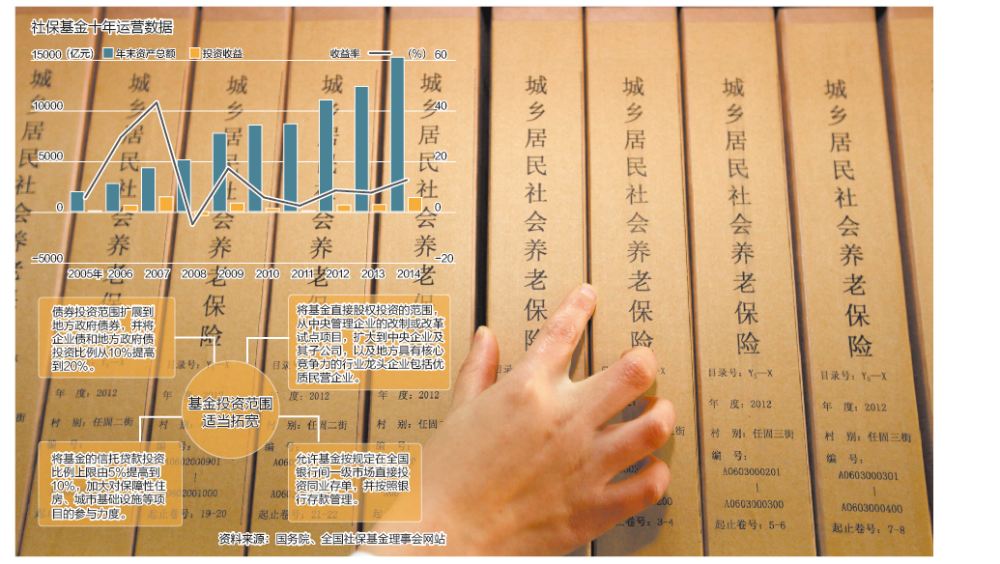 社保基金十年运营数据
15000 (亿元) 年末资产总额 投资收益 收益率 (%) 60
10000 40
5000 20
0 0
-5000 -20
2005年 2006 2007 2008 2009 2010 2011 2012 2013 2014
债券投资范围扩展到
地方政府债券，并将
企业债和地方政府债
投资比例从10%提高
到20%。
将基金直接股权投资的范围，
从中央管理企业的改制或改革
试点项目，扩大到中央企业及
其子公司，以及地方具有核心
竞争力的行业龙头企业包括优
质民营企业。
基金投资范围
适当拓宽
将基金的信托贷款投资
比例上限由5%提高到
10%，加大对保障性住
房、城市基础设施等项
目的参与力度。
允许基金按规定在全国
银行间一级市场直接投
资同业存单，并按照银
行存款管理。
资料来源：国务院、全国社保基金理事会网站
城乡居民社会养老保险
年 度：2012
村 别：任固二街
编 号：
A0602000901
0602001000
起止卷号：19-20
城乡居民社会养老保险
目录号：
度：2012
别：任固二街
起止卷号：21-22
城乡居民社会养老保险
年 度：2012
村 别：任固二
城乡居民社会养老保险
城乡居民社会养老保险
3-4
城乡居民社会养老保险
目录号：Y₅—X
年 度：2012
村 别：任固三街
编 号：
A0603000201
A0603000300
起止卷号：5-6
城乡居民社会养老保险
目录号：Y₅—X
年 度：2012
村 别：任固三街
编 号：
A0603000301
A0603000400
起止卷号：7-8